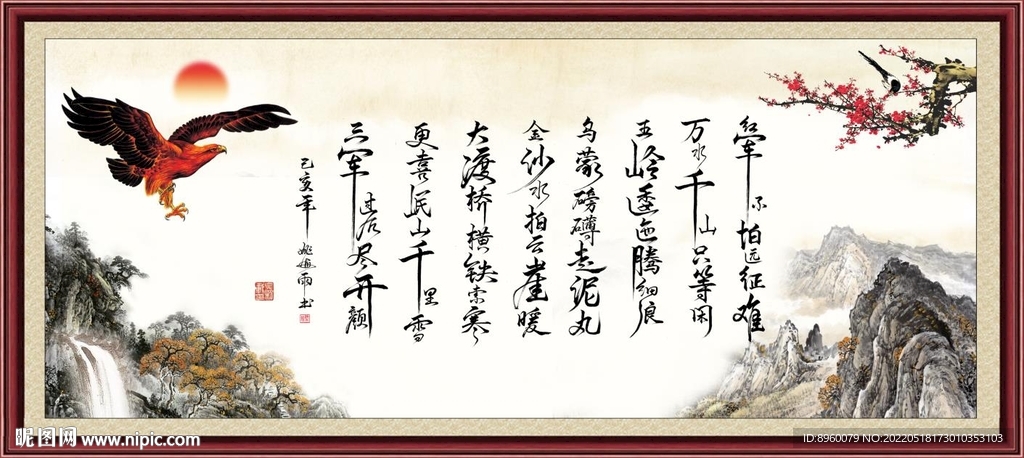 红军不怕远征难
万水千山只等闲
五岭逶迤腾细浪
乌蒙磅礴走泥丸
金沙水拍云崖暖
大渡桥横铁索寒
更喜岷山千里雪
三军过后尽开颜
己亥年 姚迪雨书
昵图网 www.nipic.com
ID:8960079 NO:20220518173010353103